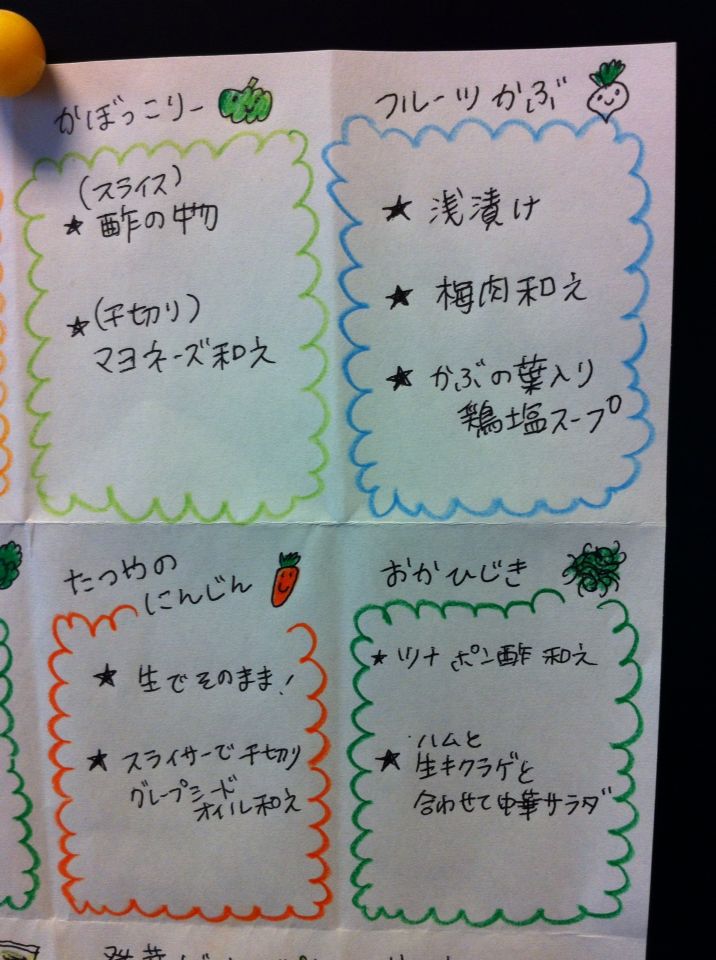 かぼっこりー
(スライス)
★酢の物
★(千切り)
マヨネーズ和え
フルーツかぶ
★浅漬け
★梅肉和え
★かぶの葉入り
鶏塩スープ
たつやの
にんじん
★生でそのまま!
★スライサーで千切り
グレープシード
オイル和え
おかひじき
★ツナポン酢和え
★ハムと
生キクラゲと
合わせて中華サラダ